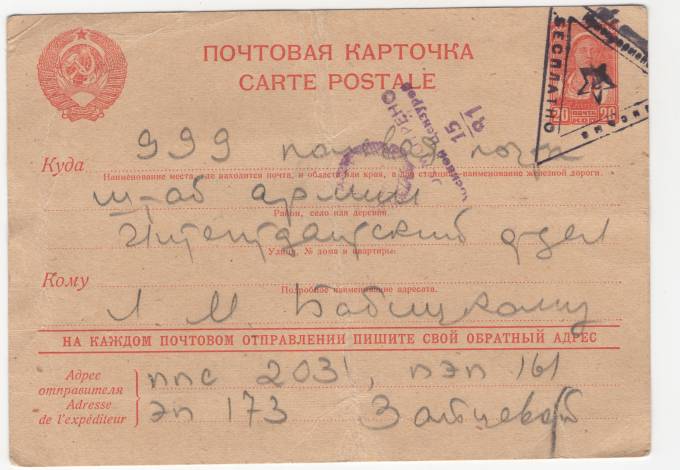 ПОЧТОВАЯ КАРТОЧКА
CARTE POSTALE
БЕСПЛАТНО
20 ПОЧТА 20
КОП.
15
Куда 999 полевая почта
Наименование места, где находится почта, и области или края, а для станций—наименование железной дороги.
штаб армии
Район, село или деревня.
Интендантский отдел
Улица, № дома и квартиры.
Кому
Подробное наименование адресата.
Л. М. Бабицкому
НА КАЖДОМ ПОЧТОВОМ ОТПРАВЛЕНИИ ПИШИТЕ СВОЙ ОБРАТНЫЙ АДРЕС
Адрес отправителя ппс 2031, пэп 161
Adresse de l'expéditeur эп 173